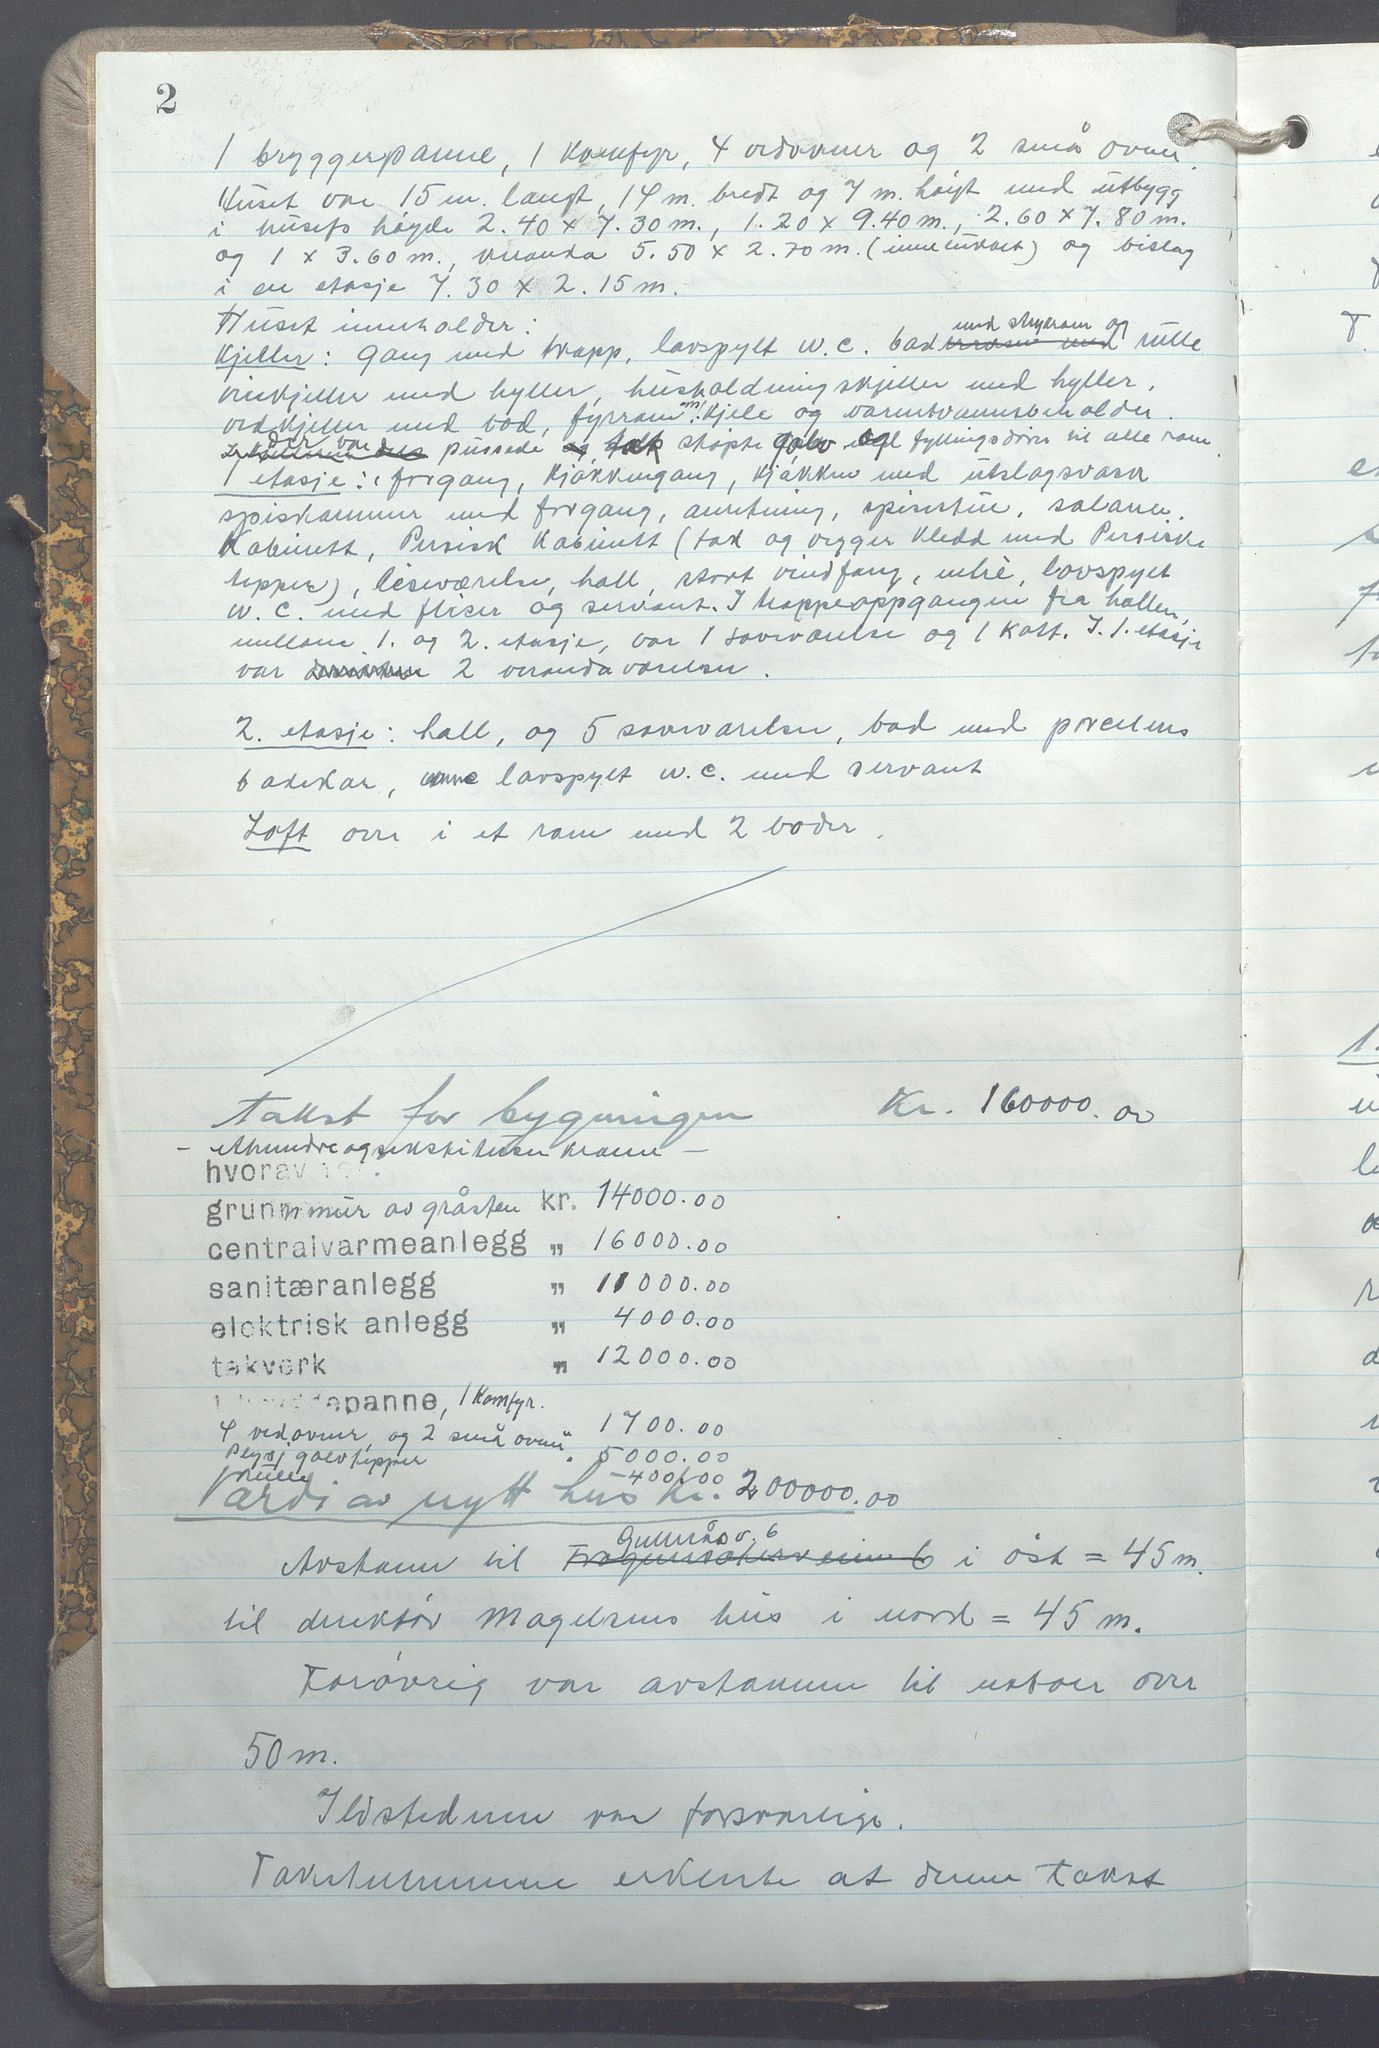 2
1 bryggerpanne, 1 komfyr, 4 vedovner og 2 små ovner.
Huset var 15 m. langt, 14 m. bredt og 7 m. høigt med utbygg
i husets høyde 2.40 x 7.30 m., 1.20 x 9.40 m., 2.60 x 7.80 m.
og 1 x 3.60 m., veranda 5.50 x 2.70 m. (innelukket) og bislag
i en etasje 7.30 x 2.15 m.
Huset inneholder:
med strykerom og
Kjeller: gang med trapp, lavspylt w.c. bad med rulle
vinkjeller med hyller, husholdningskjeller med hyller,
vedkjeller med bod, fyrrom m. kjele og varmtvannsbeholder.
der var pussede og tak støpte golv og fyllingsdører til alle rom
1 etasje: forgang, kjøkkengang, kjøkken med utslagsvask
spiskammer med forgang, anretning, spisestue, salong,
Kabinett, Persisk Kabinett (tak og vegger kledd med Persiske
tepper), leseværelse, hall, stort vindfang, entrè, lavspylt
w.c. med fliser og servant. I trappeoppgangen fra hallen,
mellom 1. og 2. etasje, var 1 soveværelse og 1 kott. I 1. etasje
var 2 verandaværelser.
2. etasje: hall, og 5 soveværelser, bad med porcelens
badekar, lavspylt w.c. med servant
Loft over i et rom med 2 boder.
Takst for bygningen Kr. 160000.00
- etthundreogsekstitusen kroner -
hvorav
grunnmur av gråsten kr. 14000.00
centralvarmeanlegg „ 16000.00
sanitæranlegg „ 11000.00
elektrisk anlegg „ 4000.00
takverk „ 12000.00
1 bryggepanne, 1 Komfyr.
4 vedovner og 2 små ovner „ 1700.00
golvtepper „ 5000.00
rulle - 400.00
Verdi av nytt hus kr. 200000.00
Gulleråsv. 6
Avstann til Frognerseterveien 6 i øst = 45 m.
til direktør Magelsens hus i nord = 45 m.
Forøvrig var avstannen til naboer over
50 m.
Ildstedene var forsvarlige.
Takstmennene erkjente at denne takst